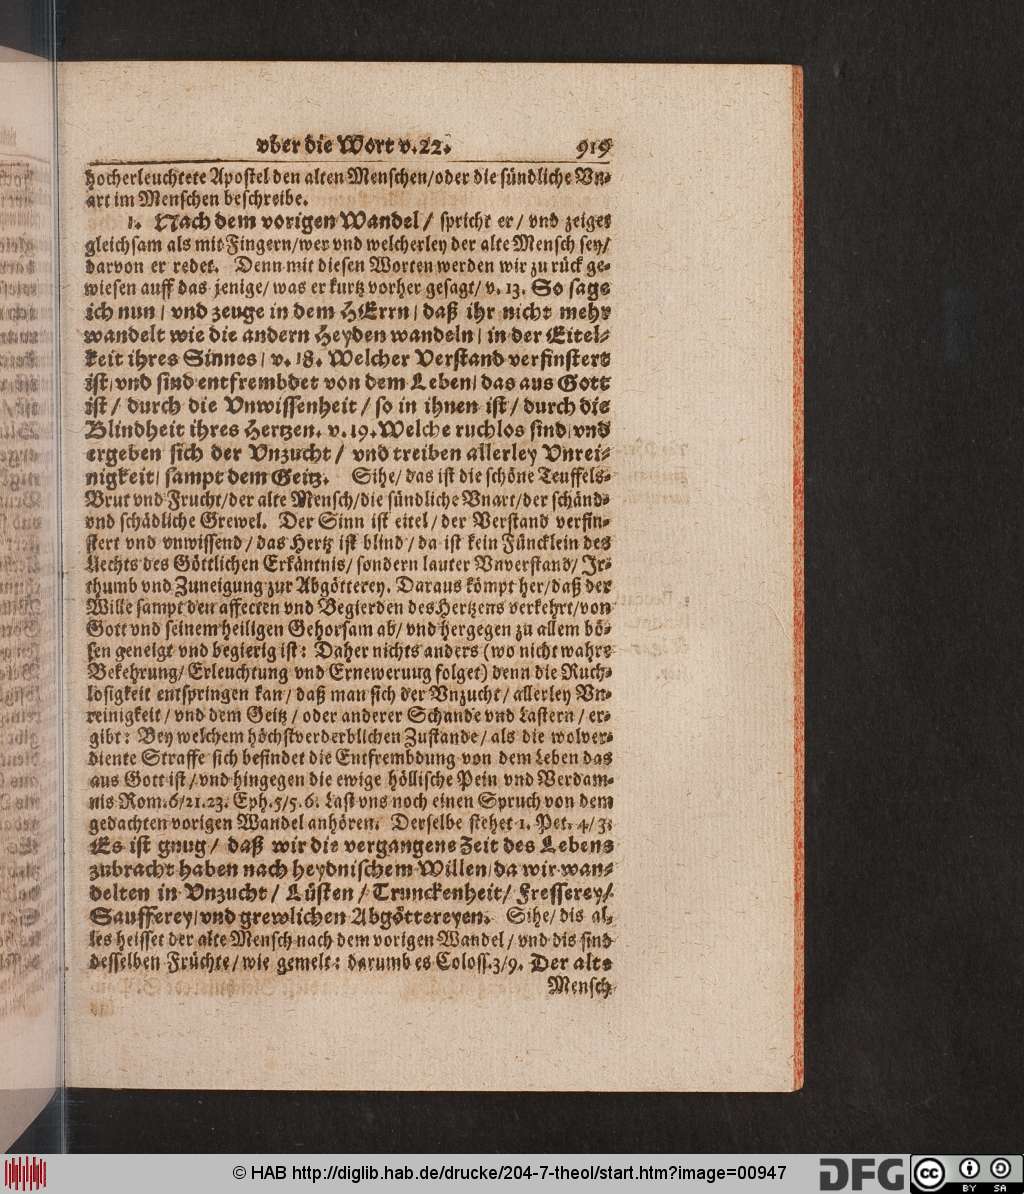 vber die Wort v. 22. 919
hocherleuchtete Apostel den alten Menschen/oder die sündliche Vn-
art im Menschen beschreibe.
1. Nach dem vorigen Wandel/ spricht er/ vnd zeiget
gleichsam als mit Fingern/wer vnd welcherley der alte Mensch sey/
darvon er redet. Denn mit diesen Worten werden wir zu rück ge-
wiesen auff das jenige/ was er kurtz vorher gesagt/ v. 13. So sage
ich nun/ vnd zeuge in dem HErrn/ daß ihr nicht mehr
wandelt wie die andern Heyden wandeln/ in der Eitel-
keit ihres Sinnes/ v. 18. Welcher Verstand verfinstert
ist/ vnd sind entfrembdet von dem Leben/ das aus Gott
ist/ durch die Vnwissenheit/ so in ihnen ist/ durch die
Blindheit ihres Hertzen. v. 19. Welche ruchlos sind/ vnd
ergeben sich der Vnzucht/ vnd treiben allerley Vnrei-
nigkeit/ sampt dem Geitz. Sihe/ das ist die schöne Teuffels-
Brut vnd Frucht/der alte Mensch/die sündliche Vnart/der schänd-
vnd schädliche Grewel. Der Sinn ist eitel/ der Verstand verfin-
stert vnd vnwissend/ das Hertz ist blind/ da ist kein Füncklein des
Liechts des Göttlichen Erkäntnis/ sondern lauter Vnverstand/ Jr-
thumb vnd Zuneigung zur Abgötterey. Daraus kömpt her/daß der
Wille sampt den affecten vnd Begierden des Hertzens verkehrt/von
Gott vnd seinem heiligen Gehorsam ab/ vnd hergegen zu allem bö-
sen geneigt vnd begierig ist: Daher nichts anders (wo nicht wahre
Bekehrung/ Erleuchtung vnd Ernewerung folget) denn die Ruch-
losigkeit entspringen kan/ daß man sich der Vnzucht/ allerley Vn-
reinigkeit/ vnd dem Geitz/ oder anderer Schande vnd Lastern/ er-
gibt: Bey welchem höchstverderblichen Zustande/ als die wolver-
diente Straffe sich befindet die Entfrembdung von dem Leben das
aus Gott ist/ vnd hingegen die ewige höllische Pein vnd Verdam-
nis Rom. 6/21.23. Eph. 5/5.6. Last vns noch einen Spruch von dem
gedachten vorigen Wandel anhören. Derselbe stehet 1. Pet. 4/3.
Es ist gnug/ daß wir die vergangene Zeit des Lebens
zubracht haben nach heydnischem Willen/ da wir wan-
delten in Vnzucht/ Lüsten/ Trunckenheit/ Fresserey/
Saufferey/ vnd grewlichen Abgöttereyen. Sihe/ dis al-
les heisset der alte Mensch nach dem vorigen Wandel/ vnd dis sind
desselben Früchte/ wie gemelt: darumb es Coloss. 3/9. Der alte
Mensch
© HAB http://diglib.hab.de/drucke/204-7-theol/start.htm?image=00947
DFG
cc BY SA